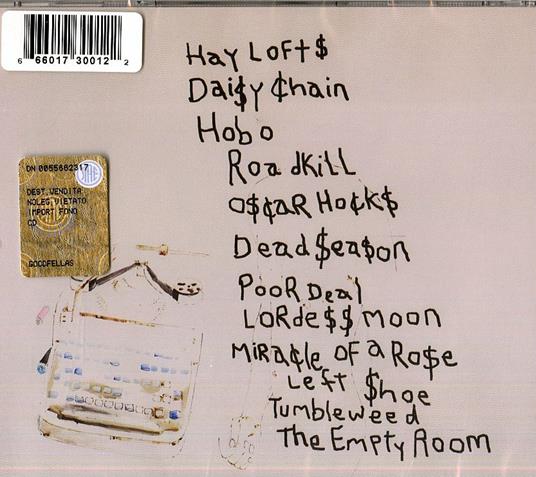 Hay Loft$
Dai$y ₵hain
Hobo
RoadkiLL
o$₵aR Ho₵k$
Dead $ea$on
PooR Deal
LoRde$$ moon
MiRa₵le oF a Ro$e
Left $hoe
Tumbleweed
The Empty Room
6 66017 30012 2
DN 0055662317
DEST.VENDITA
NOLEG.VIETATO
IMPORT FONO
CD
GOODFELLAS